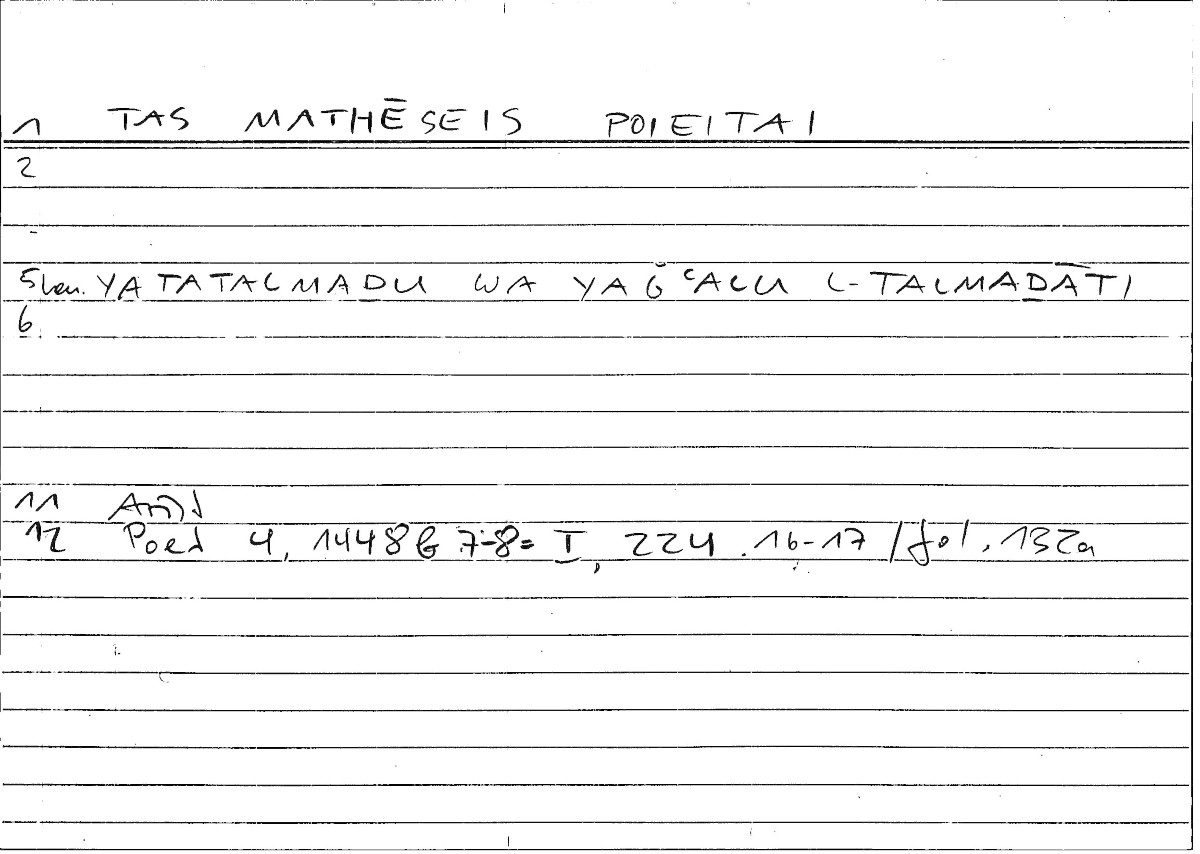 1 TAS MATHĒSEIS POIEITAI
2
5 YATATALMAḎU WA YAǦʿALU L-TALMAḎĀTI
6
11 Arist
12 Poet 4, 1448b 7-8 = I, 224.16-17 / fol. 132a